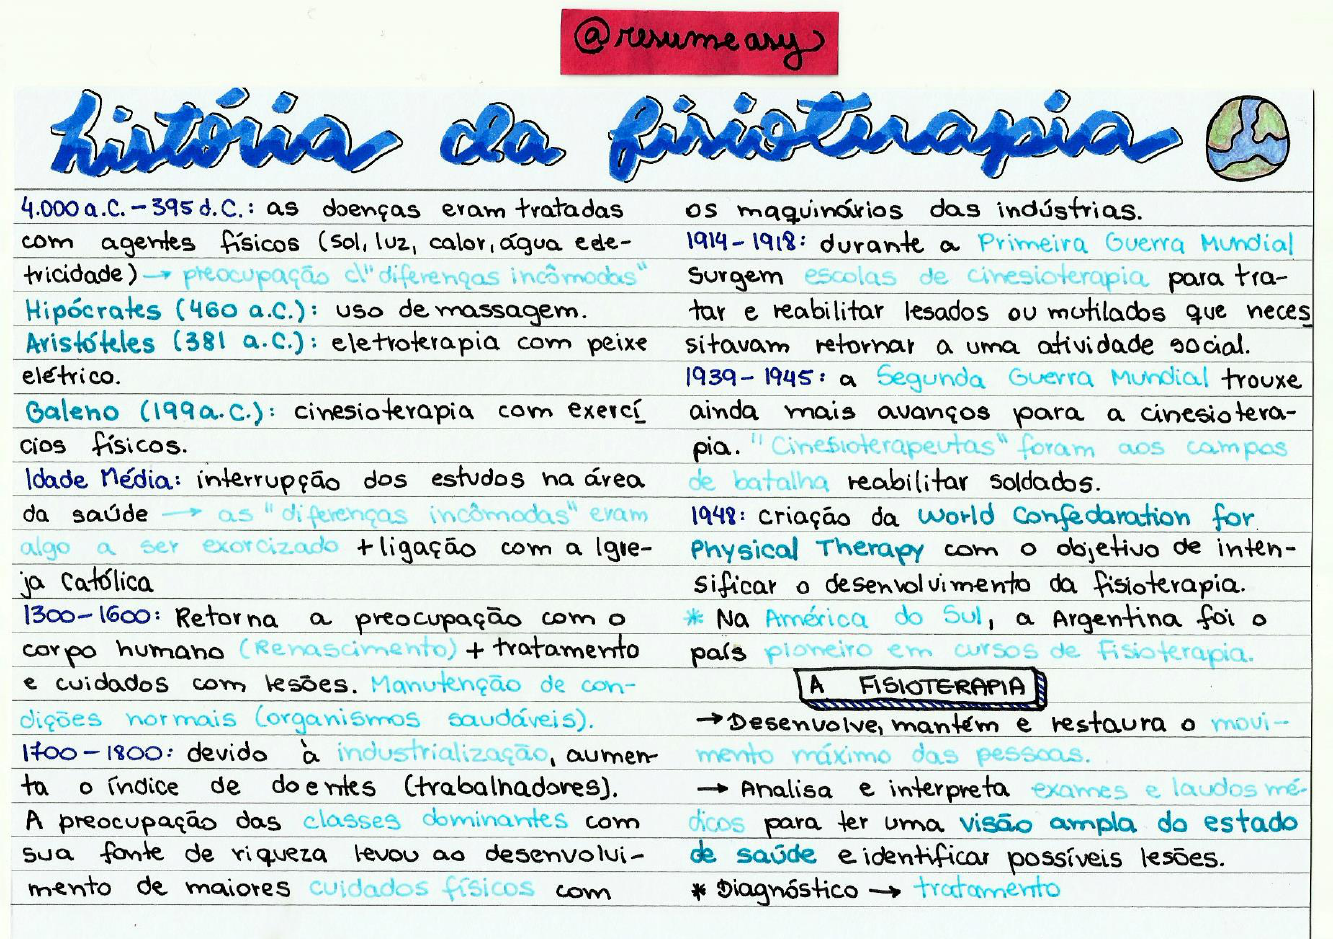 @resumeasy
história da fisioterapia
4.000 a.C. - 395 d.C.: as doenças eram tratadas
com agentes físicos (sol, luz, calor, água e ele-
tricidade) → preocupação c\ "diferenças incômodas"
Hipócrates (460 a.C.): uso de massagem.
Aristóteles (381 a.C.): eletroterapia com peixe
elétrico.
Galeno (199 a.C.): cinesioterapia com exercí
cios físicos.
Idade Média: interrupção dos estudos na área
da saúde → as "diferenças incômodas" eram
algo a ser exorcizado + ligação com a Igre-
ja Católica
1300-1600: Retorna a preocupação com o
corpo humano (Renascimento) + tratamento
e cuidados com lesões. Manutenção de con-
dições normais (organismos saudáveis).
1700-1800: devido à industrialização, aumen-
ta o índice de doentes (trabalhadores).
A preocupação das classes dominantes com
sua fonte de riqueza levou ao desenvolvi-
mento de maiores cuidados físicos com
os maquinários das indústrias.
1914-1918: durante a Primeira Guerra Mundial
surgem escolas de cinesioterapia para tra-
tar e reabilitar lesados ou mutilados que neces
sitavam retornar a uma atividade social.
1939-1945: a Segunda Guerra Mundial trouxe
ainda mais avanços para a cinesiotera-
pia. "Cinesioterapeutas" foram aos campos
de batalha reabilitar soldados.
1948: criação da World Confedaration for
Physical Therapy com o objetivo de inten-
sificar o desenvolvimento da fisioterapia.
* Na América do Sul, a Argentina foi o
país pioneiro em cursos de Fisioterapia.
A FISIOTERAPIA
→ Desenvolve, mantém e restaura o movi-
mento máximo das pessoas.
→ Analisa e interpreta exames e laudos mé-
dicos para ter uma visão ampla do estado
de saúde e identificar possíveis lesões.
* Diagnóstico → tratamento